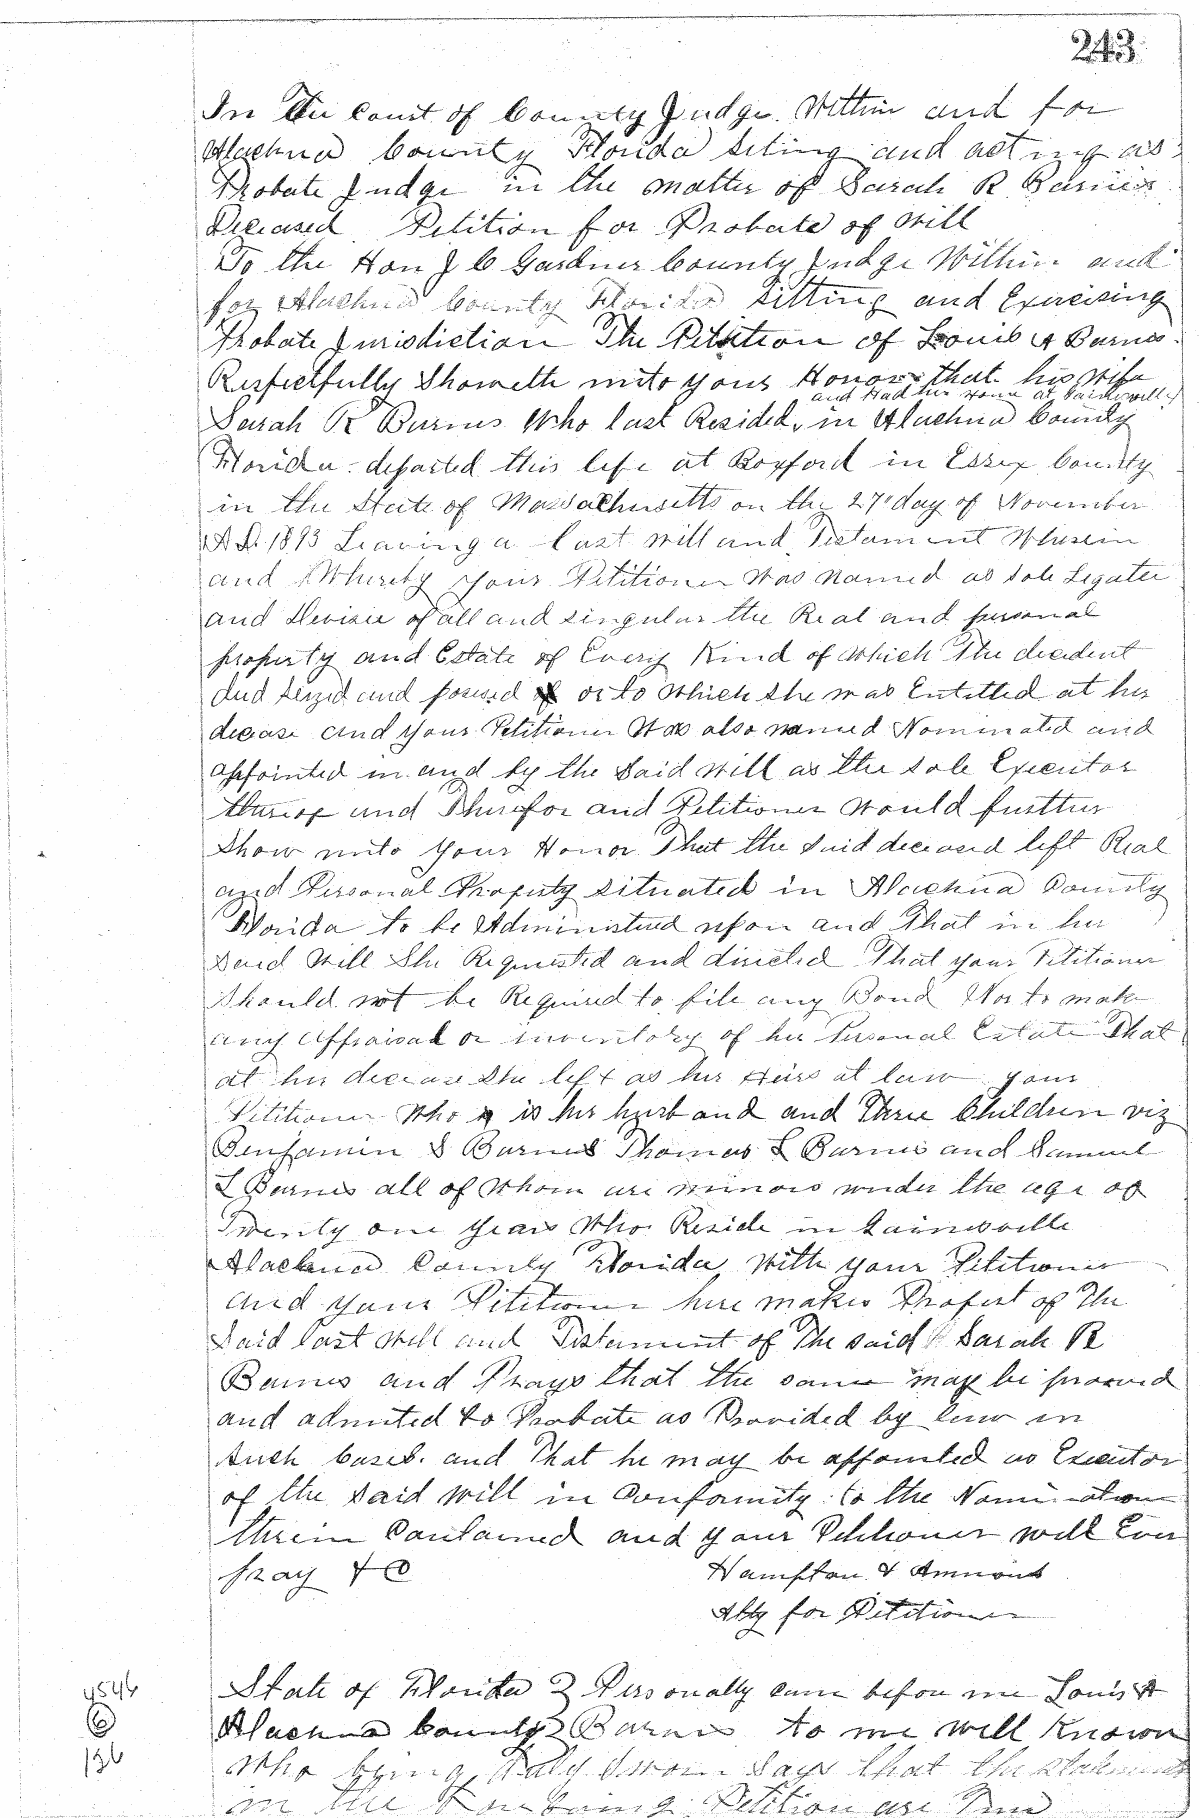 243
In The Court of County Judge. Within and for
Alachua County Florida siting and acting as
Probate Judge in the matter of Sarah R Barnes
Deceased. Petition for Probate of Will
To the Hon J C Gardner County Judge Within and
for Alachua County Florida sitting and Exercising
Probate Jurisdiction The Petition of Louis A Barnes.
Respectfully Showeth unto your Honor that his wife
and had her home at Gainesville
Sarah R Barnes Who last Resided, in Alachua County
Florida. departed this life at Boxford in Essex County
in the State of Massachusetts on the 27 day of November
A.D. 1893 Leaving a last will and Testament Wherein
and Whereby your Petitioner was Named as sole Legatee
and Devisee of all and singular the Real and personal
property and Estate of Every Kind of which The decedent
died seized and possessed of or to which she was Entitled at her
decease and your Petitioner was also named Nominated and
appointed in and by the Said will as the sole Executor
thereof and Therefor and Petitioner would further
Show unto your Honor That the said deceased left Real
and Personal Property situated in Alachua County
Florida to be Administered upon and That in her
said Will She Requested and directed That your Petitioner
Should not be Required to file any Bond Nor to make
any Appraisal or inventory of her Personal Estate That
at her decease she left as her Heirs at law your
Petitioner Who is her husband and Three Children viz
Benjamin S Barnes Thomas L Barnes and Samuel
L Barnes all of Whom are minors under the age of
Twenty one years Who Reside in Gainesville
Alachua County Florida, With your Petitioner
and your Petitioner here makes Profert of The
Said last Will and Testament of The said Sarah R
Barnes and Prays that the same may be proved
and admited to Probate as Provided by law in
such Cases. and That he may be appointed as Executor
of the said Will in Conformity to the Nomination
therein Contained and your Petitioner will Ever
pray &C
Hampton &
Atty for Petitioner
State of Florida } Personally came before me Louis A
Alachua County } Barnes to me well Known
4546
6
136
Who being duly Sworn Says that the Statements
in the Foregoing Petition are True